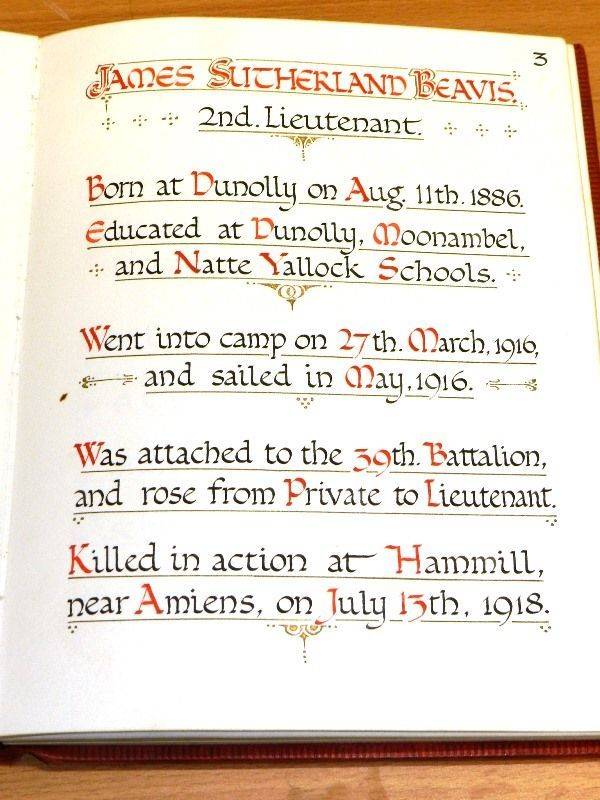 3
James Sutherland Beavis.
2nd. Lieutenant.
Born at Dunolly on Aug. 11th. 1886.
Educated at Dunolly, Moonambel,
and Natte Yallock Schools.
Went into camp on 27th. March, 1916,
and sailed in May, 1916.
Was attached to the 39th. Battalion,
and rose from Private to Lieutenant.
Killed in action at Hammill,
near Amiens, on July 13th, 1918.